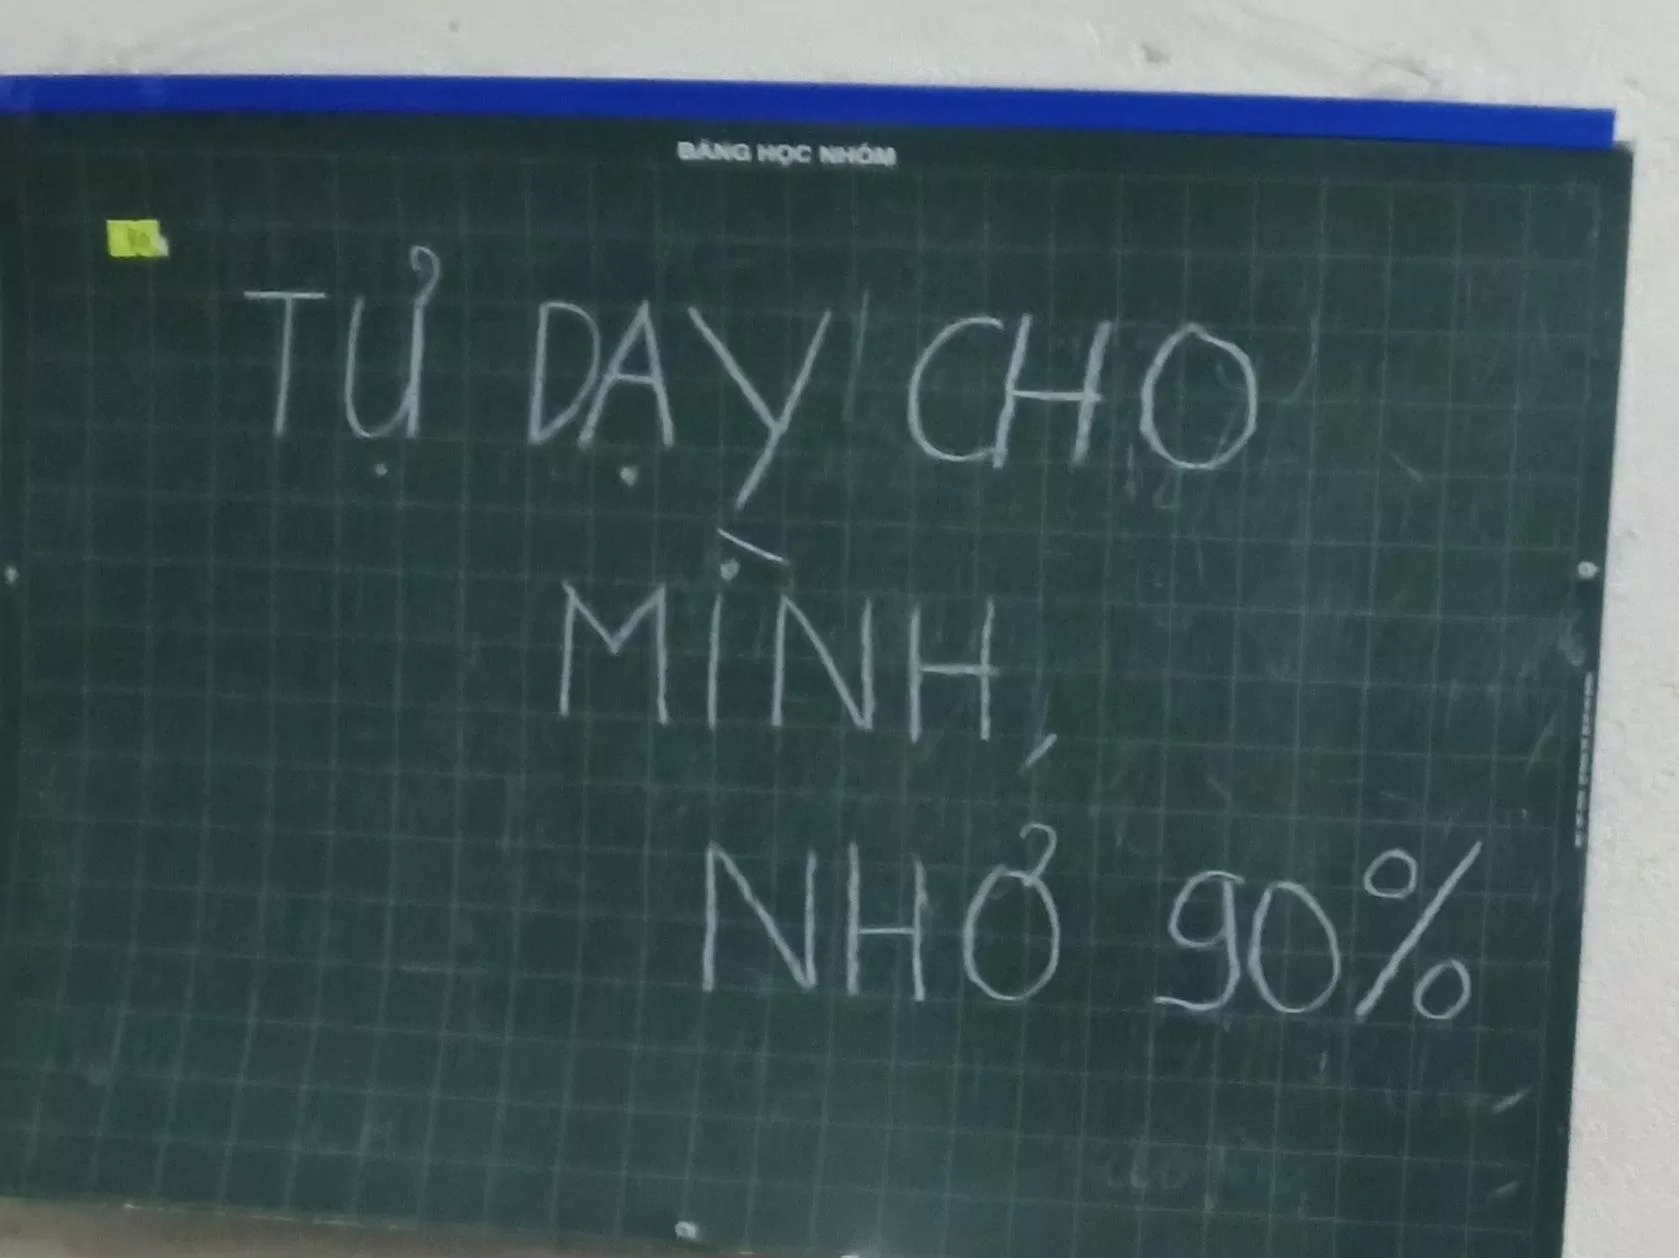 BẢNG HỌC NHÓM
TỰ DẠY CHO
MÌNH
NHỚ 90%